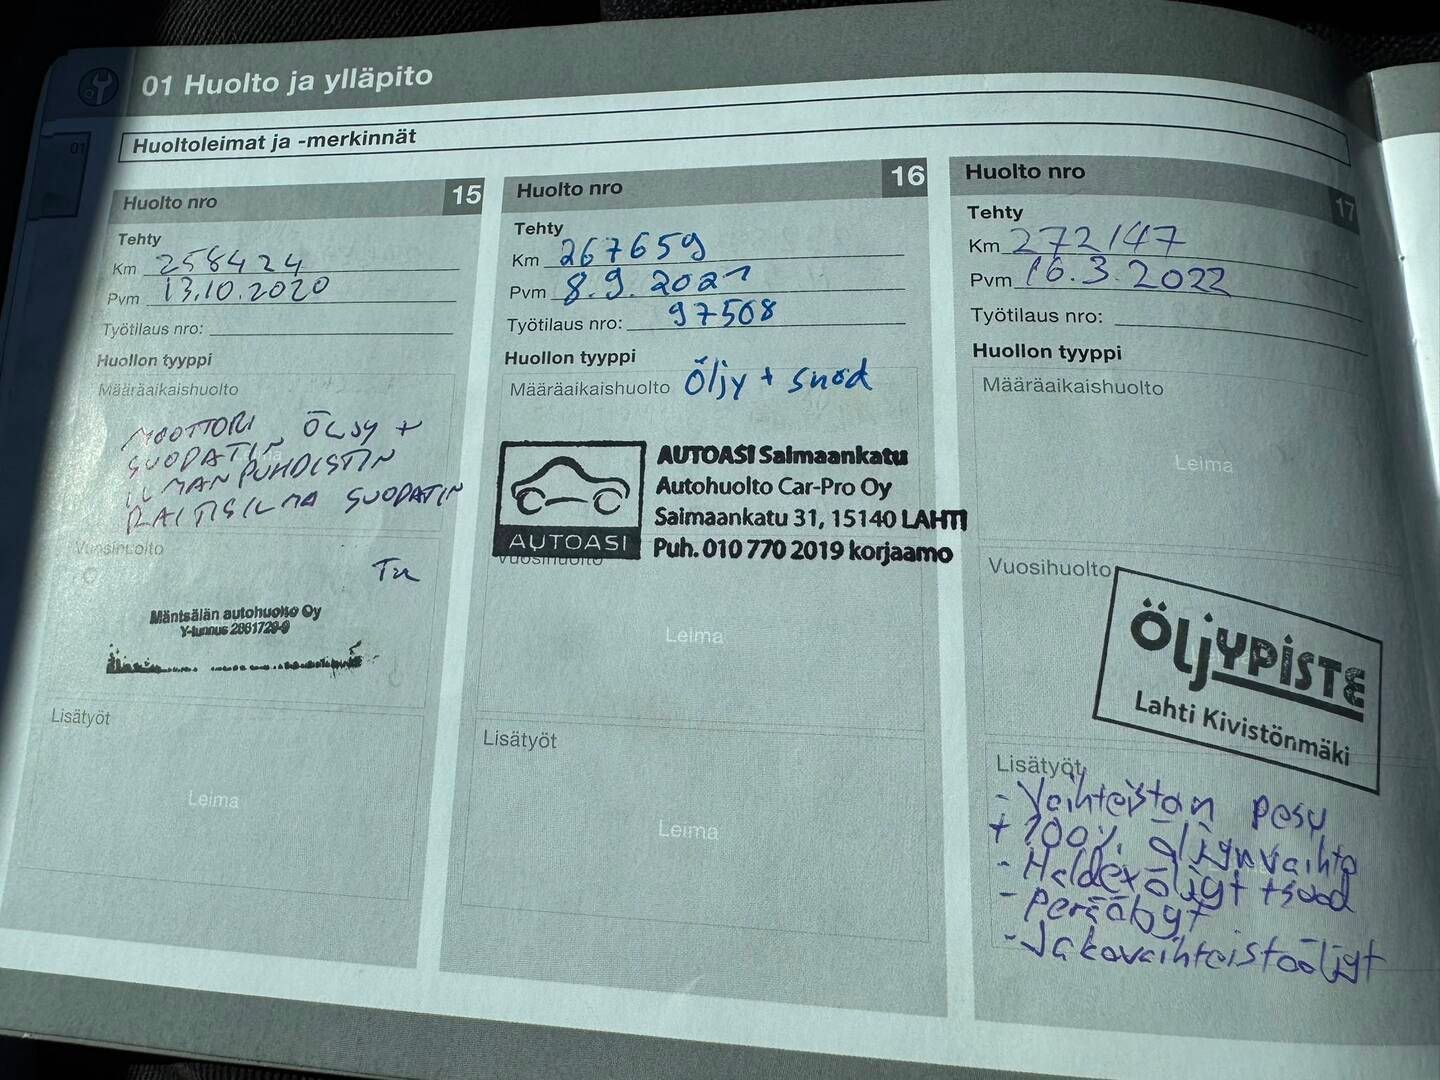 01 Huolto ja ylläpito
01
Huoltoleimat ja -merkinnät
Huolto nro 15
Tehty
Km 258424
Pvm 13.10.2020
Työtilaus nro:
Huollon tyyppi
Määräaikaishuolto
MOOTTORI ÖLJY +
SUODATIN
ILMANPUHDISTIN
RAITISILMA SUODATIN
Leima
Vuosihuolto
Mäntsälän autohuolto Oy
Y-tunnus 2861729-9
Lisätyöt
Leima
Huolto nro 16
Tehty
Km 267659
Pvm 8.9.2021
Työtilaus nro: 97508
Huollon tyyppi
Määräaikaishuolto Öljy + suod
AUTOASI
AUTOASI Saimaankatu
Autohuolto Car-Pro Oy
Saimaankatu 31, 15140 LAHTI
Puh. 010 770 2019 korjaamo
Vuosihuolto
Leima
Lisätyöt
Leima
Huolto nro 17
Tehty
Km 272147
Pvm 16.3.2022
Työtilaus nro:
Huollon tyyppi
Määräaikaishuolto
Leima
Vuosihuolto
ÖLJYPISTE
Lahti Kivistönmäki
Lisätyöt
- Vaihteistan pesu
+ 100% öljynvaihto
- Haldexöljyt + suod
- Peräöljyt
- Jakovaihteistoöljyt